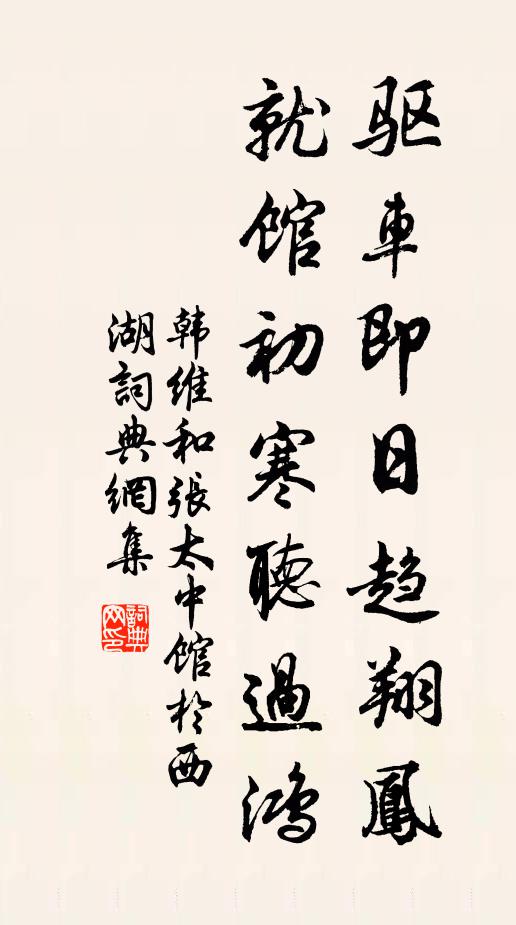 驱車即日趋翔鳳
就馆初寒聴過鴻
韩維和張太中馆於西
湖詞典網集
詞典網印